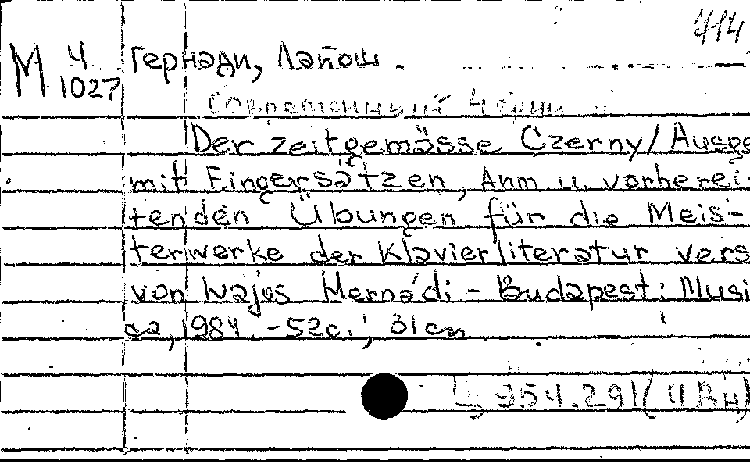 414
М 4 Гернади, Лайош.
1027
Современный Черни
Der zeitgemässe Czerny / Ausge
mit Fingersätzen, Anm u. vorberei-
tenden Übungen für die Meis-
terwerke der Klavierliteratur vers
von Lajos Hernádi - Budapest: Musi
ca, 1984. - 52 с.; 31 cm
Ц 954.291 (4 Вн)